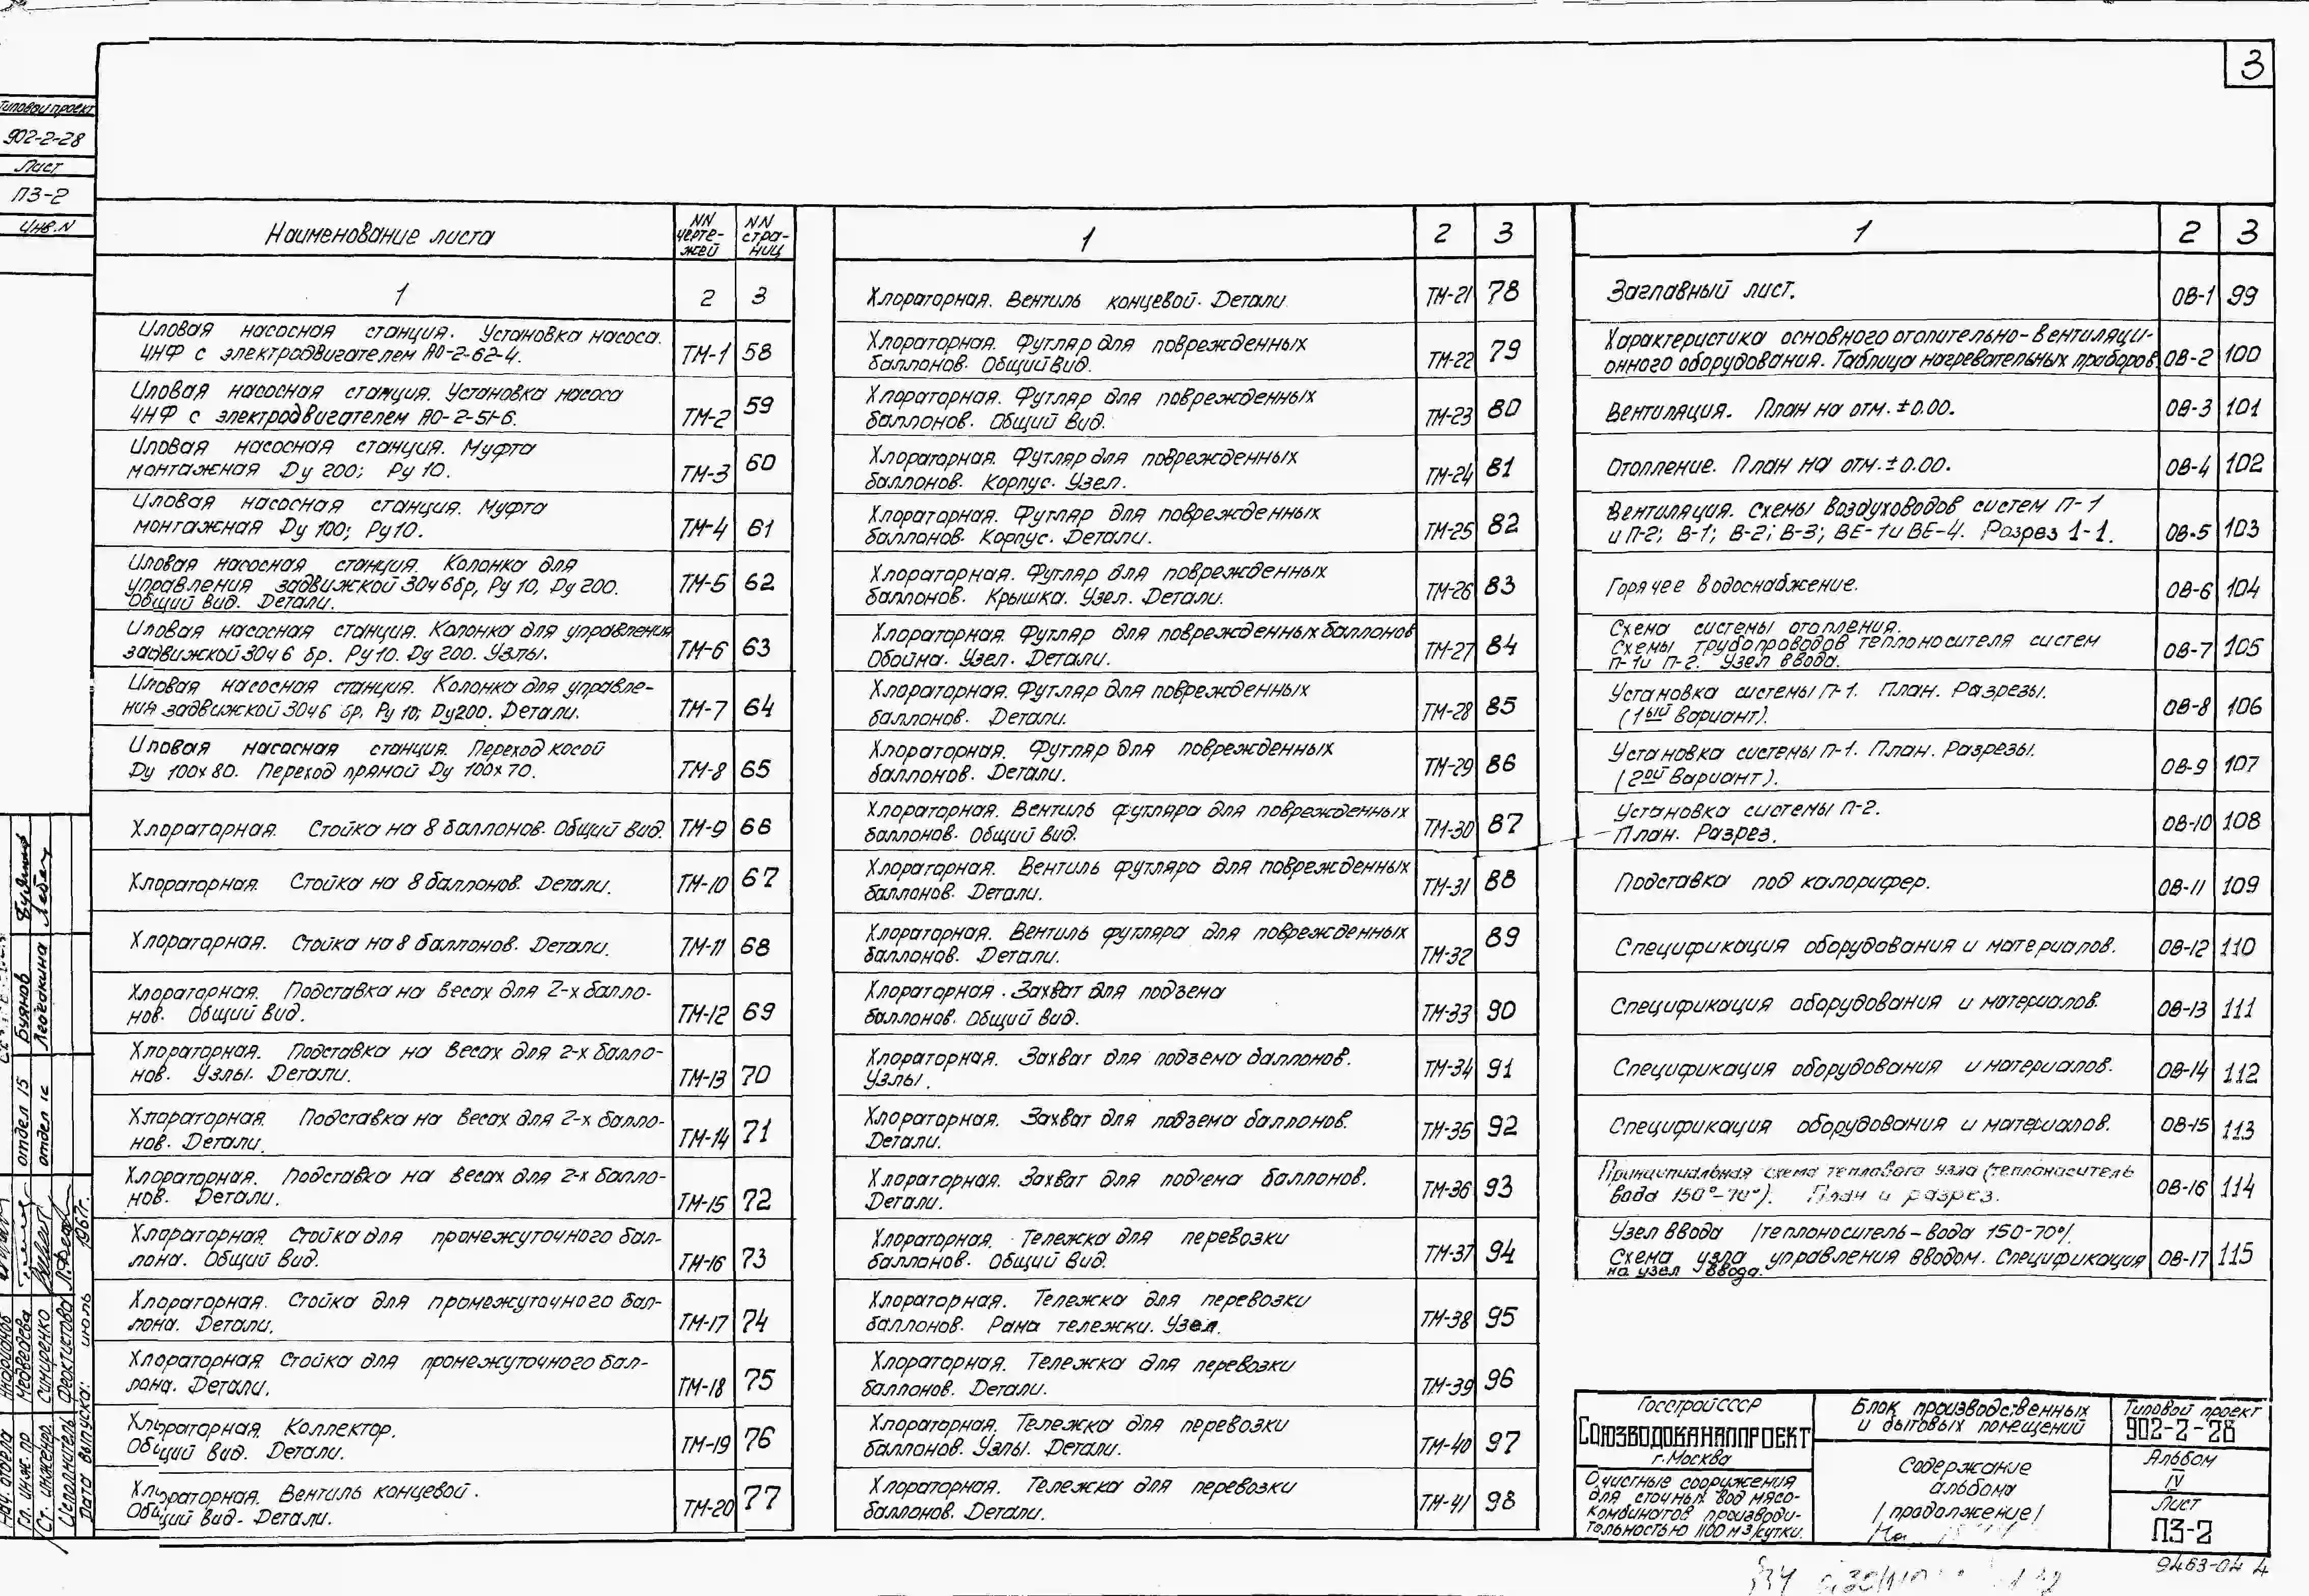 3
Типовой проект
902-2-28
Лист
ПЗ-2
Инв.N
Наименование листа
NN чертежей
NN страниц
1 2 3
Иловая насосная станция. Установка насоса.
4НФ с электродвигателем АО-2-62-4. ТМ-1 58
Иловая насосная станция. Установка насоса
4НФ с электродвигателем АО-2-51-6. ТМ-2 59
Иловая насосная станция. Муфта
монтажная Ду 200; Ру 10. ТМ-3 60
Иловая насосная станция. Муфта
монтажная Ду 100; Ру10. ТМ-4 61
Иловая насосная станция. Колонка для
управления задвижкой 30ч6бр, Ру 10, Ду 200.
Общий вид. Детали. ТМ-5 62
Иловая насосная станция. Колонка для управления
задвижкой 30ч 6 бр. Ру10. Ду 200. Узлы. ТМ-6 63
Иловая насосная станция. Колонка для управле-
ния задвижкой 30ч6 бр, Ру 10; Ду200. Детали. ТМ-7 64
Иловая насосная станция. Переход косой
Ду 100х80. Переход прямой Ду 100х70. ТМ-8 65
Хлораторная. Стойка на 8 баллонов. Общий вид. ТМ-9 66
Хлораторная. Стойка на 8 баллонов. Детали. ТМ-10 67
Хлораторная. Стойка на 8 баллонов. Детали. ТМ-11 68
Хлораторная. Подставка на весах для 2-х балло-
нов. Общий вид. ТМ-12 69
Хлораторная. Подставка на весах для 2-х балло-
нов. Узлы. Детали. ТМ-13 70
Хлораторная Подставка на весах для 2-х балло-
нов. Детали. ТМ-14 71
Хлораторная. Подставка на весах для 2-х балло-
нов. Детали. ТМ-15 72
Хлораторная. Стойка для промежуточного бал-
лона. Общий вид. ТМ-16 73
Хлораторная. Стойка для промежуточного бал-
лона. Детали. ТМ-17 74
Хлораторная. Стойка для промежуточного бал-
лона. Детали. ТМ-18 75
Хлораторная. Коллектор.
Общий вид. Детали. ТМ-19 76
Хлораторная. Вентиль концевой.
Общий вид. Детали. ТМ-20 77
1 2 3
Хлораторная. Вентиль концевой. Детали ТМ-21 78
Хлораторная. Футляр для поврежденных
баллонов. Общий вид. ТМ-22 79
Хлораторная. Футляр для поврежденных
баллонов. Общий вид. ТМ-23 80
Хлораторная. Футляр для поврежденных
баллонов. Корпус. Узел. ТМ-24 81
Хлораторная. Футляр для поврежденных
баллонов. Корпус. Детали. ТМ-25 82
Хлораторная. Футляр для поврежденных
баллонов. Крышка. Узел. Детали. ТМ-26 83
Хлораторная. Футляр для поврежденных баллонов
Обойма. Узел. Детали. ТМ-27 84
Хлораторная. Футляр для поврежденных
баллонов. Детали. ТМ-28 85
Хлораторная. Футляр для поврежденных
баллонов. Детали. ТМ-29 86
Хлораторная. Вентиль футляра для поврежденных
баллонов. Общий вид. ТМ-30 87
Хлораторная. Вентиль футляра для поврежденных
баллонов. Детали. ТМ-31 88
Хлораторная. Вентиль футляра для поврежденных
баллонов. Детали. ТМ-32 89
Хлораторная. Захват для подъема
баллонов. Общий вид. ТМ-33 90
Хлораторная. Захват для подъема баллонов.
Узлы. ТМ-34 91
Хлораторная. Захват для подъема баллонов.
Детали. ТМ-35 92
Хлораторная. Захват для под'ема баллонов.
Детали. ТМ-36 93
Хлораторная. Тележка для перевозки
баллонов. Общий вид. ТМ-37 94
Хлораторная. Тележка для перевозки
баллонов. Рама тележки. Узел. ТМ-38 95
Хлораторная. Тележка для перевозки
баллонов. Детали. ТМ-39 96
Хлораторная. Тележка для перевозки
баллонов. Узлы. Детали. ТМ-40 97
Хлораторная. Тележка для перевозки
баллонов. Детали. ТМ-41 98
1 2 3
Заглавный лист. ОВ-1 99
Характеристика основного отопительно-вентиляци-
онного оборудования. Таблица нагревательных приборов. ОВ-2 100
Вентиляция. План на отм. ±0.00. ОВ-3 101
Отопление. План на отм. ±0.00. ОВ-4 102
Вентиляция. Схемы воздуховодов систем П-1
и П-2; В-1; В-2; В-3; ВЕ-1 и ВЕ-4. Разрез 1-1. ОВ-5 103
Горячее водоснабжение. ОВ-6 104
Схема системы отопления.
Схемы трубопроводов теплоносителя систем
П-1и П-2. Узел ввода. ОВ-7 105
Установка системы П-1. План. Разрезы.
(1ый вариант). ОВ-8 106
Установка системы П-1. План. Разрезы.
(2ой вариант). ОВ-9 107
Установка системы П-2.
План. Разрез. ОВ-10 108
Подставка под калорифер. ОВ-11 109
Спецификация оборудования и материалов. ОВ-12 110
Спецификация оборудования и материалов. ОВ-13 111
Спецификация оборудования и материалов. ОВ-14 112
Спецификация оборудования и материалов. ОВ-15 113
Принципиальная схема теплового узла (теплоноситель
вода 150°-70°). План и разрез. ОВ-16 114
Узел ввода /теплоноситель-вода 150-70°/.
Схема узла управления вводом. Спецификация
на узел ввода. ОВ-17 115
Госстрой СССР
Союзводоканалпроект
г. Москва
Очистные сооружения
для сточных вод мясо-
комбинатов производи-
тельностью 1100 м3/сутки.
Блок производственных
и бытовых помещений
Содержание
альбома
/продолжение/
Типовой проект
902-2-28
Альбом
IV
Лист
ПЗ-2
9463-04 4
Буянов
Лебедкина
отдел 15
отдел 1с
Нач. отдела
Гл. инж. пр. Медведева
Ст. инженер. Симиренко
Исполнитель Феоктистова
Дата выпуска: июль 1967г.